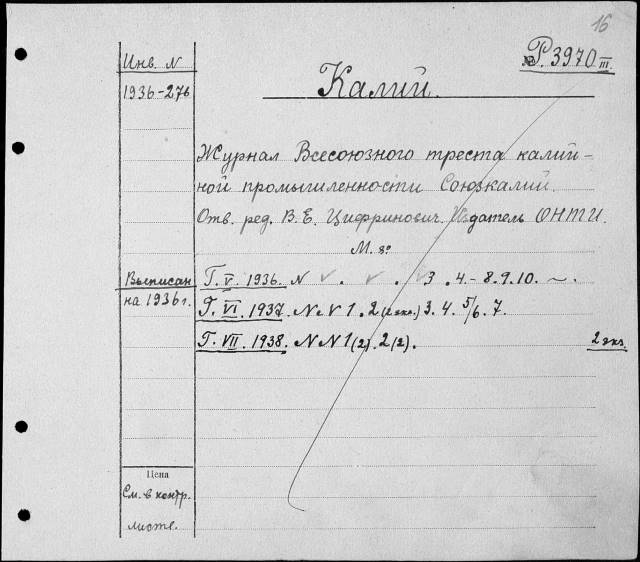 16
Инв. N
№ Р. 3970 III.
1936-276
Калий.
Журнал Всесоюзного треста калий-
ной промышленности Союзкалий.
Отв. ред. В. Е. Цифринович. Издатель ОНТИ.
М. 8°
Выписан
на 1936 г.
Г. V. 1936. N . . 3 . 4. - 8. 9. 10. ~.
Г. VI. 1937. N N 1. 2 (2 экз.) 3. 4. 5/6. 7.
Г. VII. 1938. N N 1 (2). 2 (2).
2 экз.
Цена
См. в контр.
листе.